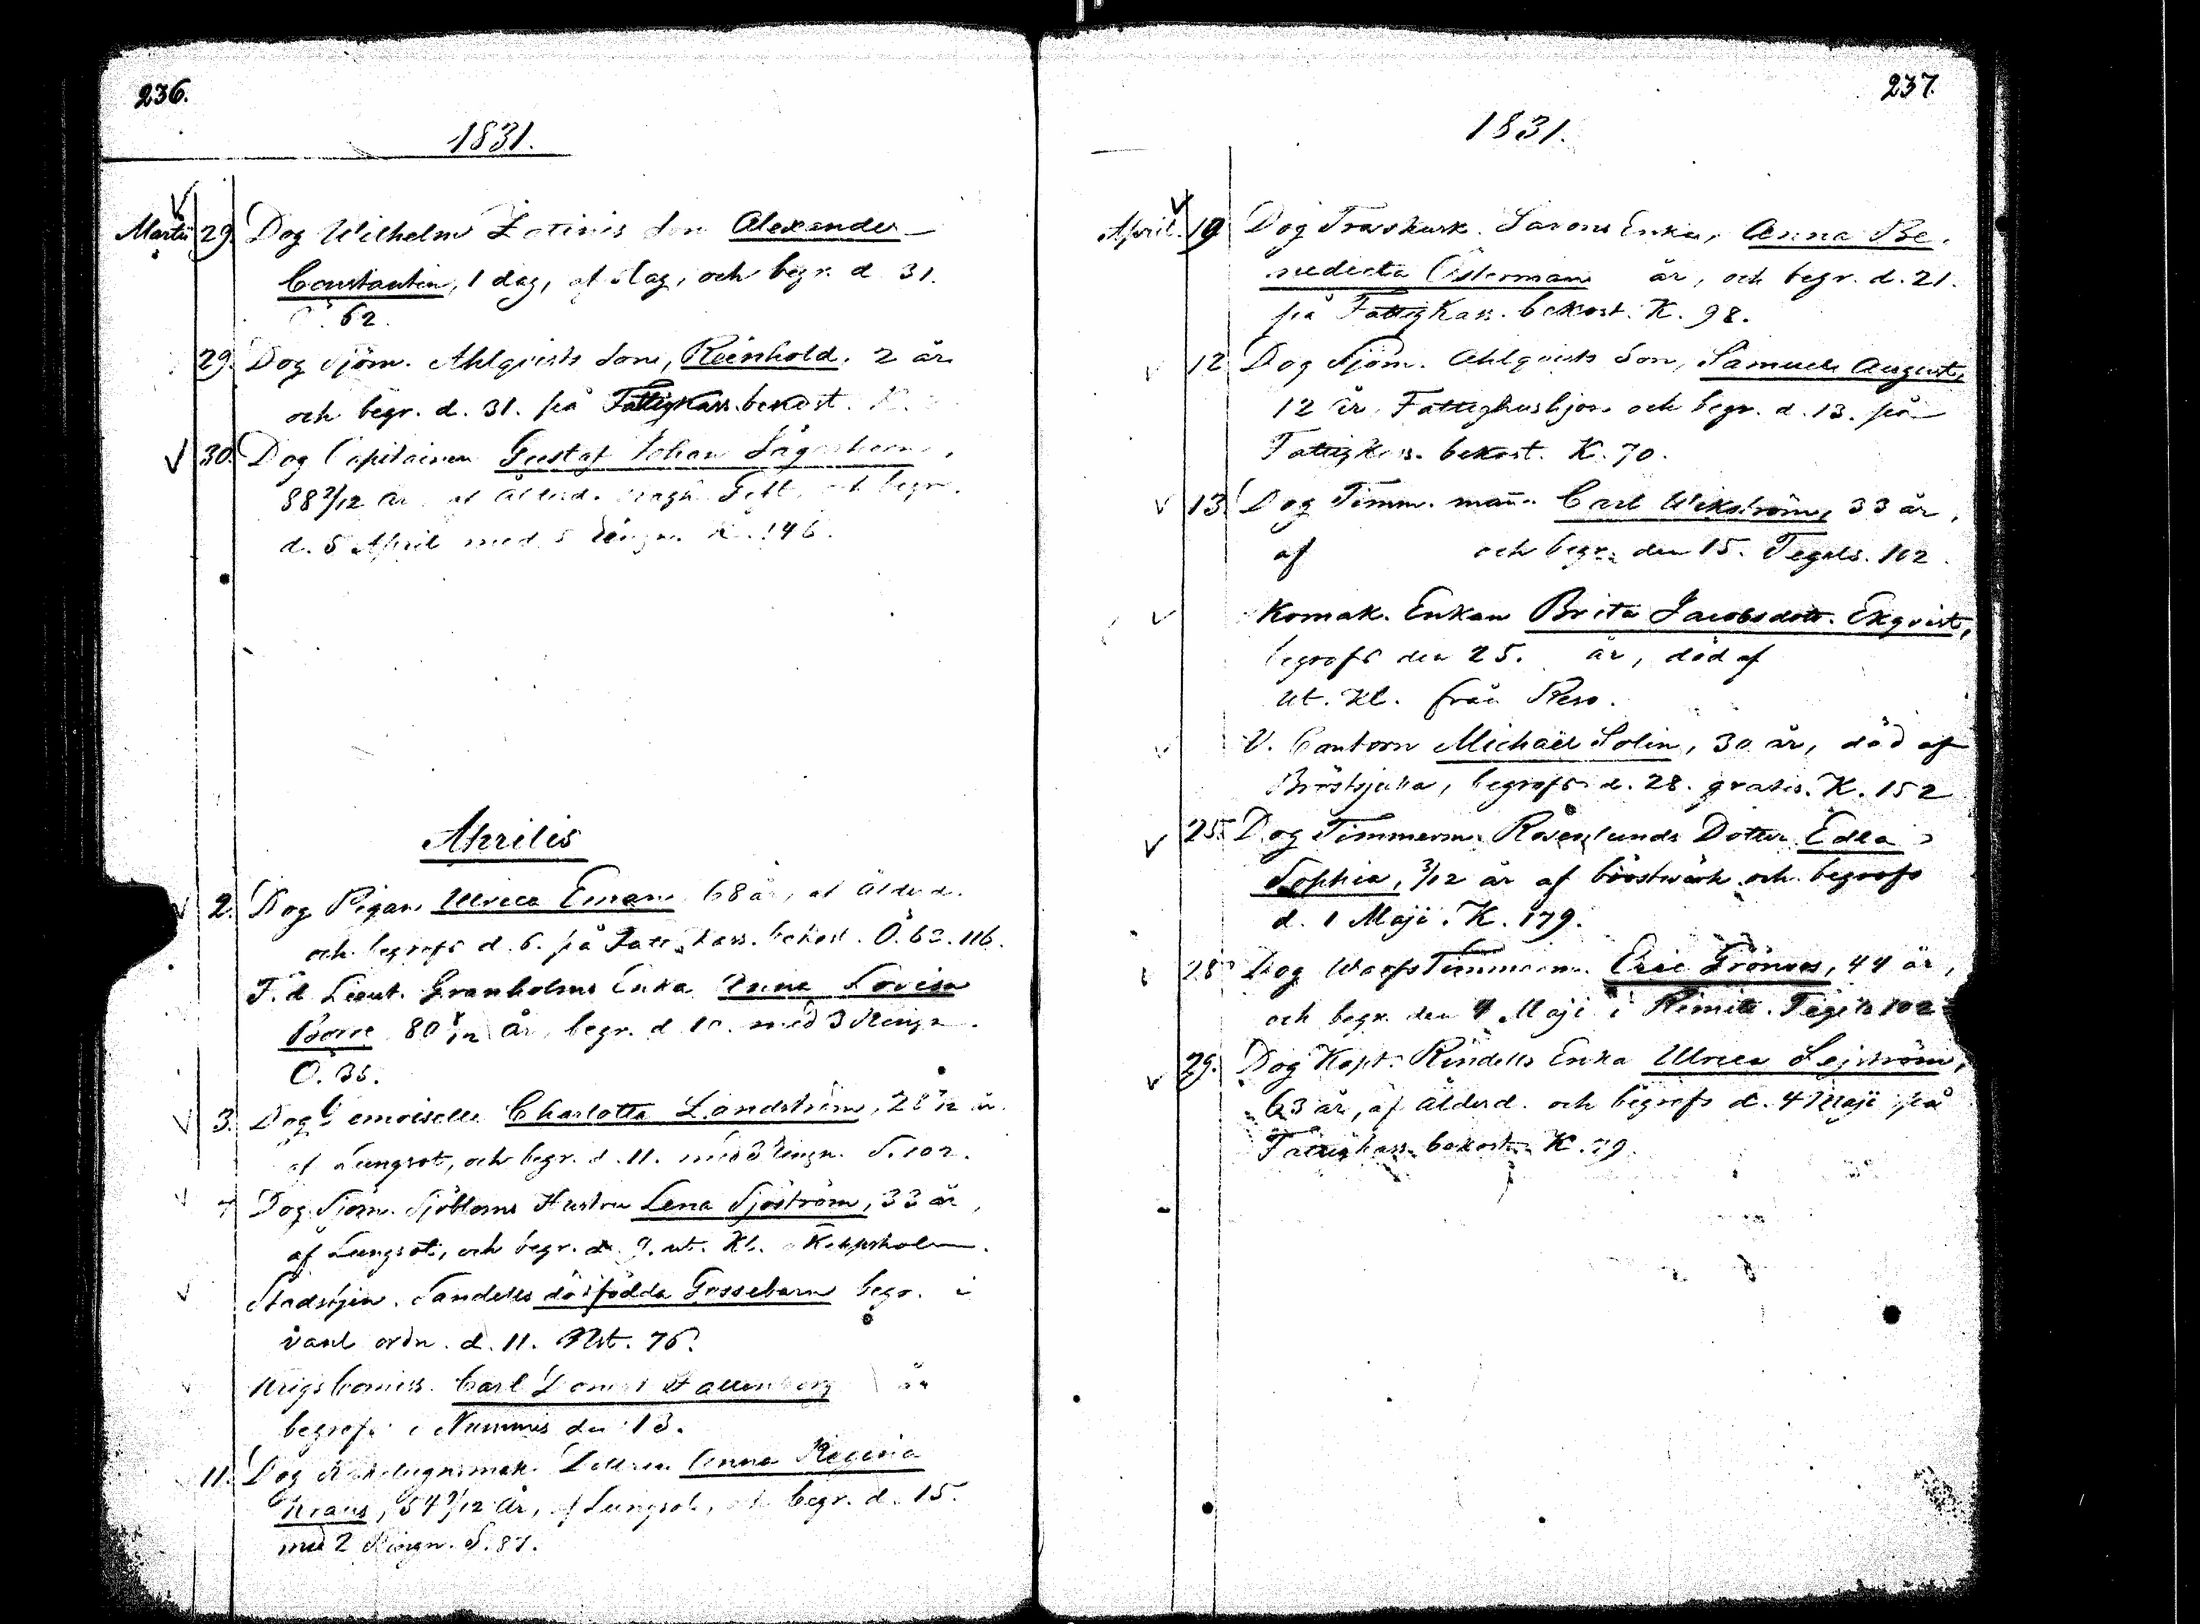 236.
1831.
Martii 29. Dog Wilhelm Son Alexander
Constantin, 1 dag, af slag, och begr. d. 31.
62.
29. Dog Sjöm. Ahlqvists Son, Reinhold. 2 år
och begr. d. 31. på Fattigkass. bekost. K.
30. Dog Capitainen Gustaf Johan
88 2/12 år, af Ålderd. och begr.
d. 5 April med 5 Ringn. K. 146.
Aprilis
2. Dog Pigan Ulrica Eman 68 år, af Ålderd.
och begrofs d. 6. på Fattigkass. bekost. Ö. 62. 116.
F. d. Lieut. Granholms Enka Anna Lovisa
80 år, begr. d. 10. med 3 Ringn.
Ö. 35.
3. Dog Demoiselle Charlotta Landström, 28 /12 år.
af Lungsot, och begr. d. 11. med 3 Ringn. S. 102.
7 Dog Sjöm. Sjöbloms Hustru Lena Sjöström, 33 år,
af Lungsot, och begr. d. 9. ut. Kl.
Stadstjen. Sandells dödfödda Gossebarn begr. i
vanl. ordn. d. 11. Nst. 76.
Krigs Comiss. Carl år
begrofs i Nummis den 13.
11. Dog Kakelugnsmak. Anna Regina
Kraus, 54 9/12 år, af Lungsot, och begr. d. 15.
med 2 Ringn. S. 87.
237.
1831.
April. 19 Dog Enka, Anna Be-
nedicta Österman år, och begr. d. 21.
på Fattigkass. bekost. K. 98.
12 Dog Sjöm. Ahlqvists Son, Samuel August,
12 år, Fattighushjon och begr. d. 13. på
Fattigkass. bekost. K. 70.
13 Dog Timm. mañ. Carl Wikström, 33 år,
af och begr. den 15. Tegels. 102.
Komak. Enkan Brita Jacobsdotr. Ekqvist,
begrofs den 25. år, död af
ut. Kl. från Reso.
V. Cantorn Michaël Solin, 30 år, död af
Bröstsjuka, begrofs d. 28. gratis. K. 152
25. Dog Timmerm. Rosenlunds Dotter Edla
Sophia, 3/12 år af bröstwärk och begrofs
d. 1 Maji. K. 179.
28 Dog Warfs Timmerm. Eric Grönroos, 44 år,
och begr. den 4 Maji i Rimito. Tegels 102
29. Dog Kopt. Rindells Enka Ulrica Sejström,
63 år, af Ålderd. och begrofs d. 4 Maji på
Fattigkass. bekost. K. 79.